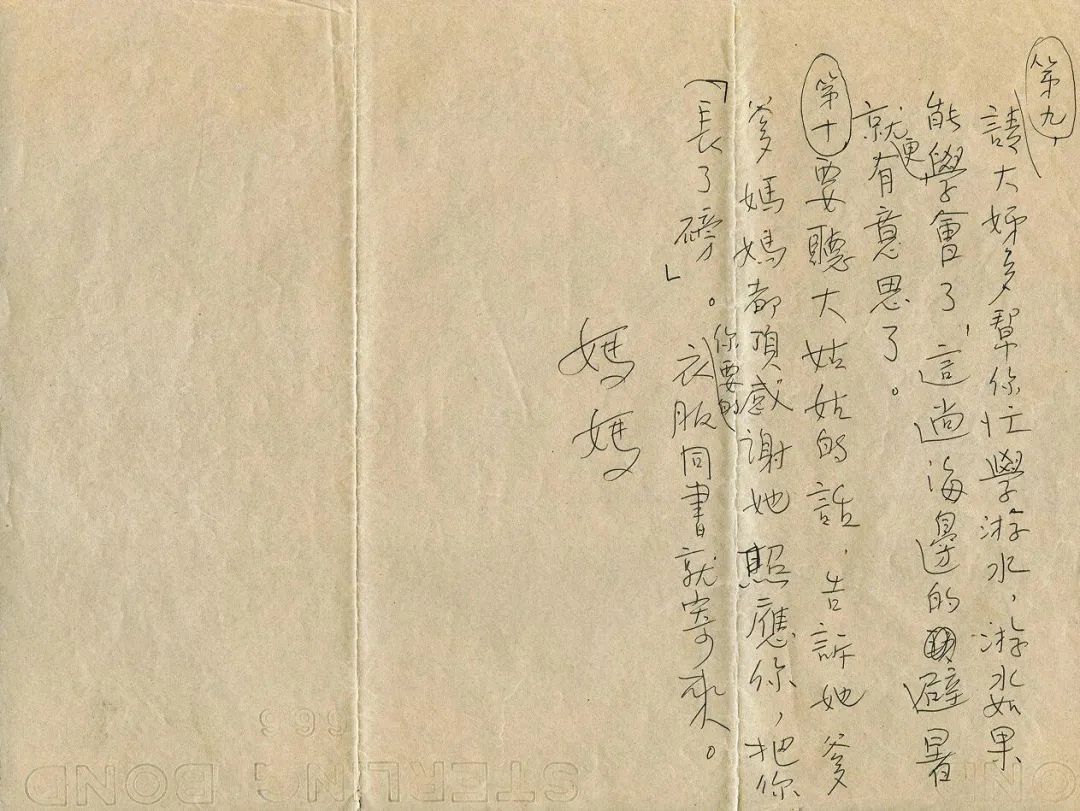 第九，
請大姊多幫你忙學游水，游水如果
能學會了，這趟海邊的避暑
就更有意思了。
第十要聽大姑姑的話，告訴她爹
爹媽媽都頂感謝她照應你，把你
「長了磅」。你要的衣服同書就寄來。
媽媽
STERLING BOND